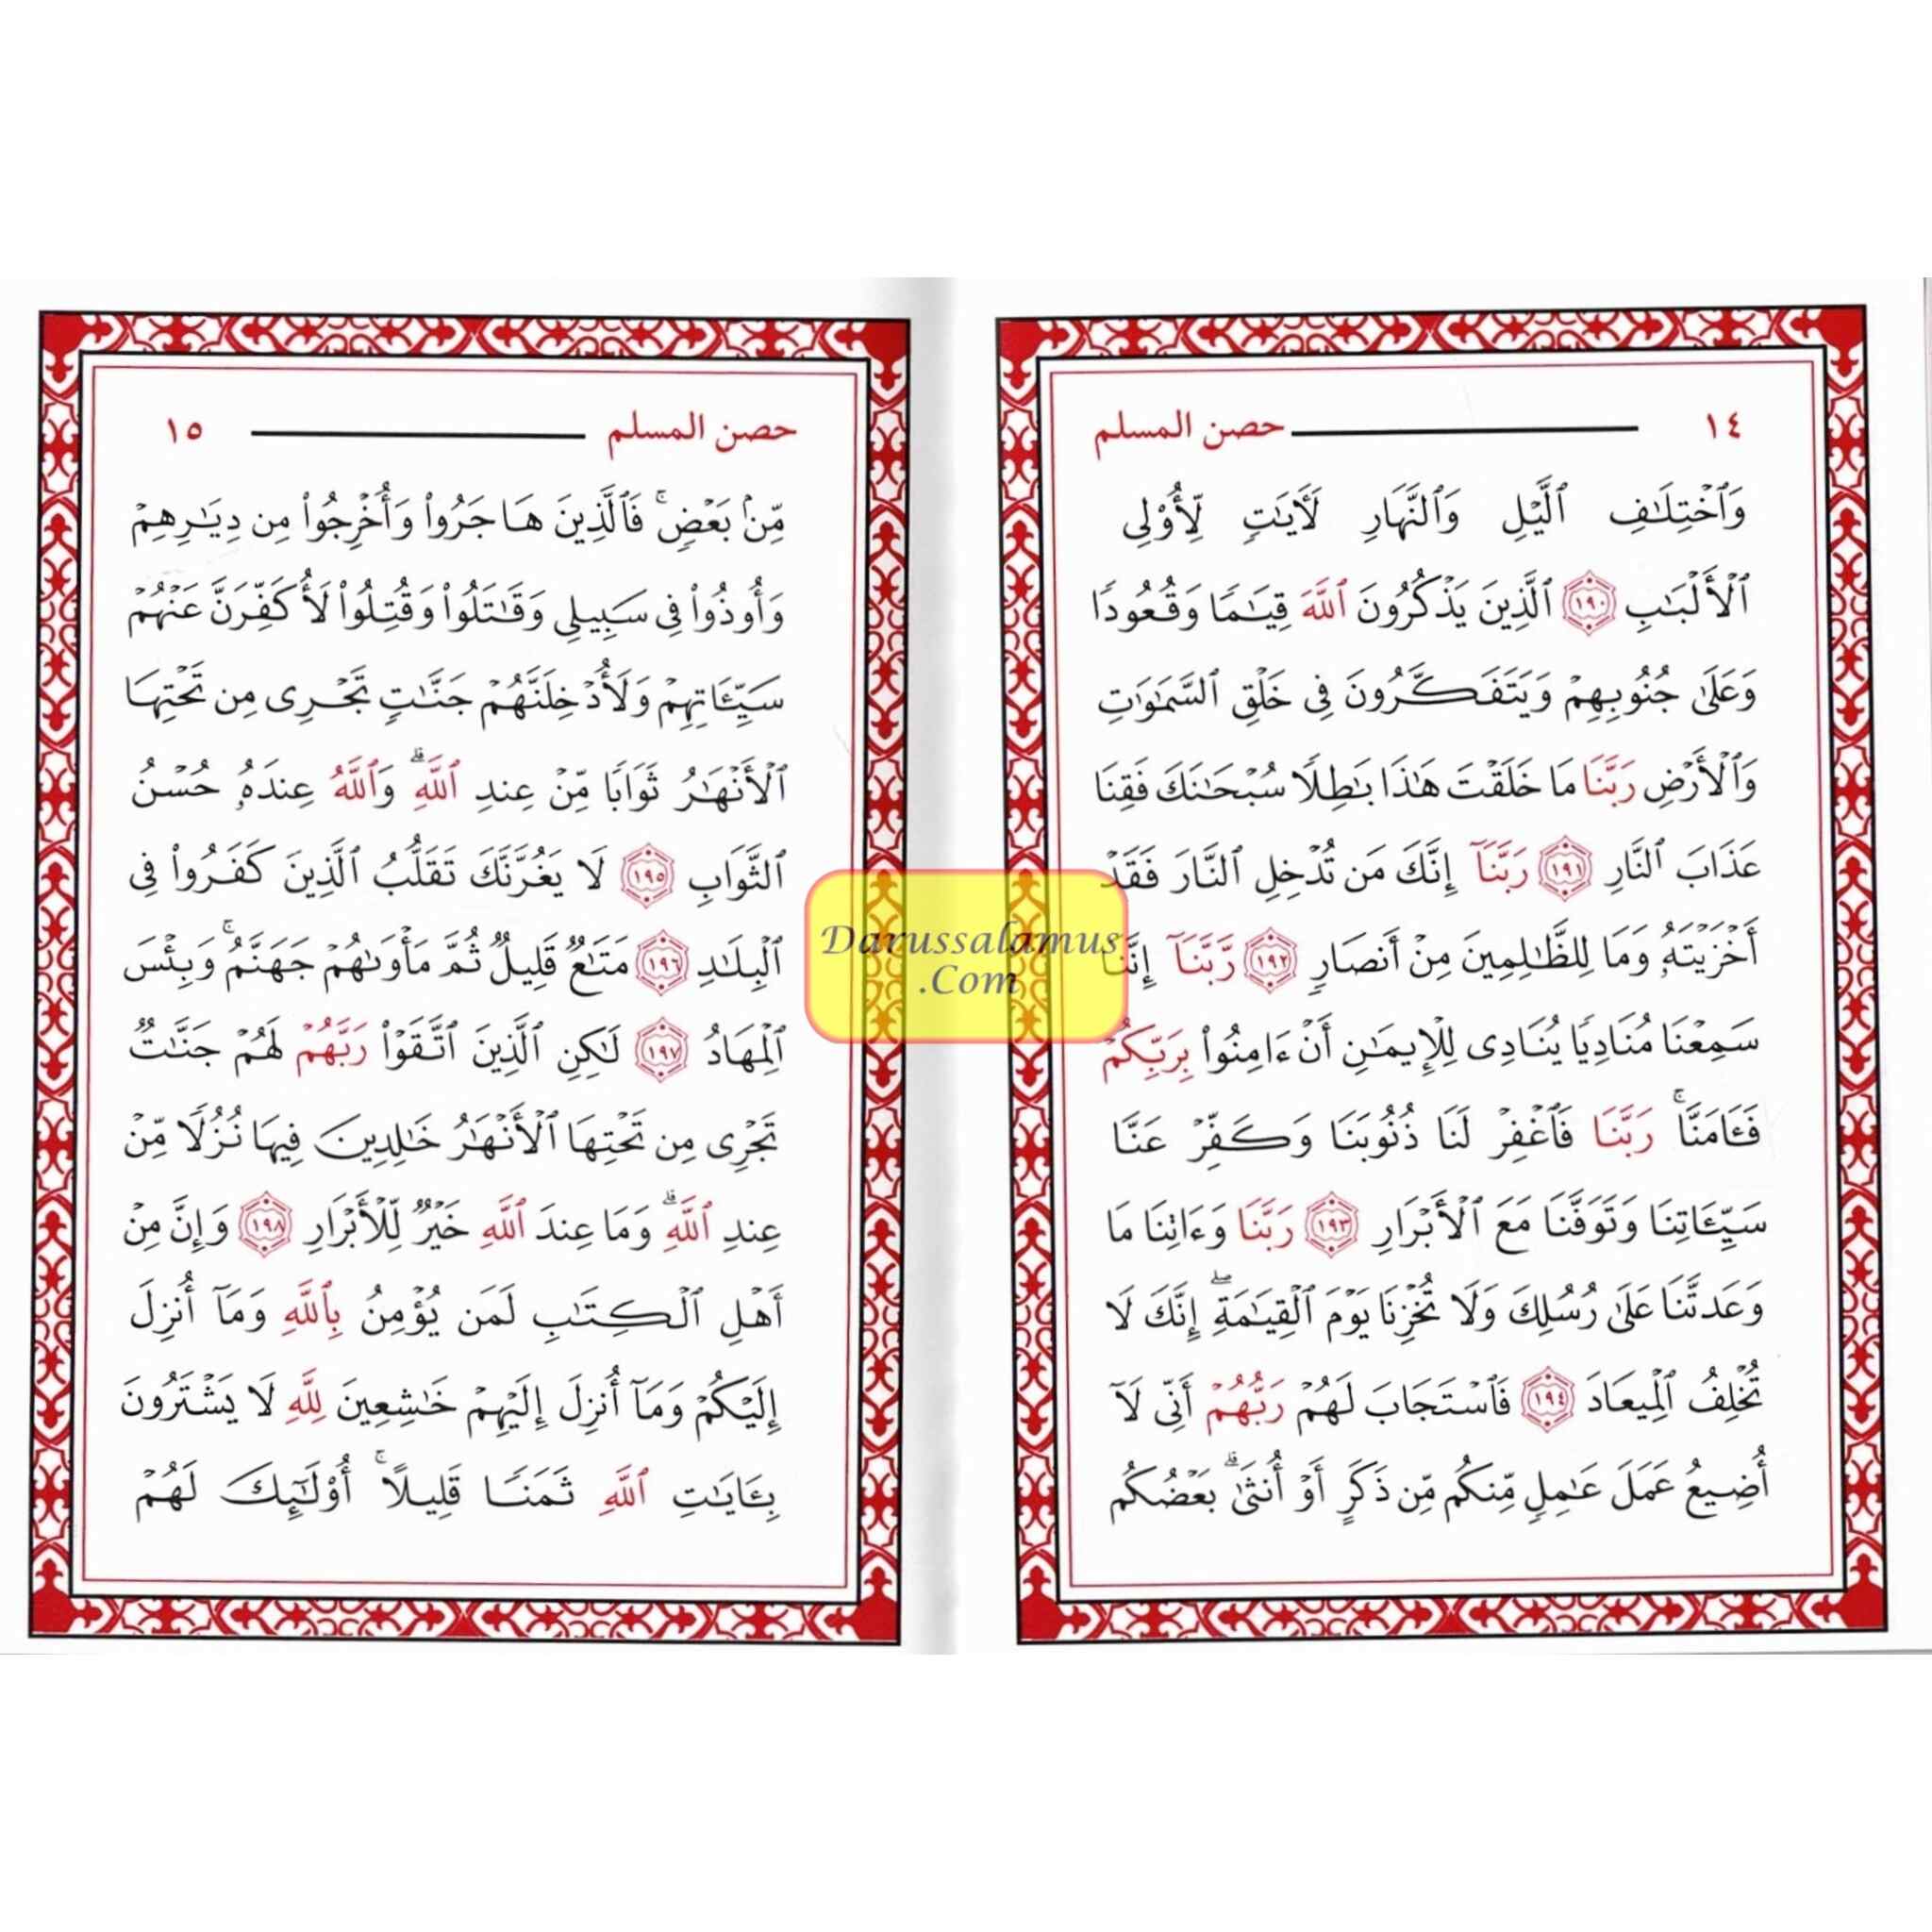 ١٤ حصن المسلم
وَٱخْتِلَـٰفِ ٱلَّيْلِ وَٱلنَّهَارِ لَـَٔايَـٰتٍ لِّأُوْلِى
ٱلْأَلْبَـٰبِ ١٩٠ ٱلَّذِينَ يَذْكُرُونَ ٱللَّهَ قِيَـٰمًا وَقُعُودًا
وَعَلَىٰ جُنُوبِهِمْ وَيَتَفَكَّرُونَ فِى خَلْقِ ٱلسَّمَـٰوَٰتِ
وَٱلْأَرْضِ رَبَّنَا مَا خَلَقْتَ هَـٰذَا بَـٰطِلًا سُبْحَـٰنَكَ فَقِنَا
عَذَابَ ٱلنَّارِ ١٩١ رَبَّنَآ إِنَّكَ مَن تُدْخِلِ ٱلنَّارَ فَقَدْ
أَخْزَيْتَهُۥ وَمَا لِلظَّـٰلِمِينَ مِنْ أَنصَارٍ ١٩٢ رَّبَّنَآ إِنَّنَا
سَمِعْنَا مُنَادِيًا يُنَادِى لِلْإِيمَـٰنِ أَنْ ءَامِنُوا۟ بِرَبِّكُمْ
فَـَٔامَنَّا ۚ رَبَّنَا فَٱغْفِرْ لَنَا ذُنُوبَنَا وَكَفِّرْ عَنَّا
سَيِّـَٔاتِنَا وَتَوَفَّنَا مَعَ ٱلْأَبْرَارِ ١٩٣ رَبَّنَا وَءَاتِنَا مَا
وَعَدتَّنَا عَلَىٰ رُسُلِكَ وَلَا تُخْزِنَا يَوْمَ ٱلْقِيَـٰمَةِ ۖ إِنَّكَ لَا
تُخْلِفُ ٱلْمِيعَادَ ١٩٤ فَٱسْتَجَابَ لَهُمْ رَبُّهُمْ أَنِّى لَآ
أُضِيعُ عَمَلَ عَـٰمِلٍ مِّنكُم مِّن ذَكَرٍ أَوْ أُنثَىٰ ۖ بَعْضُكُم
حصن المسلم ١٥
مِّنۢ بَعْضٍ ۚ فَٱلَّذِينَ هَاجَرُوا۟ وَأُخْرِجُوا۟ مِن دِيَـٰرِهِمْ
وَأُوذُوا۟ فِى سَبِيلِى وَقَـٰتَلُوا۟ وَقُتِلُوا۟ لَأُكَفِّرَنَّ عَنْهُمْ
سَيِّـَٔاتِهِمْ وَلَأُدْخِلَنَّهُمْ جَنَّـٰتٍ تَجْرِى مِن تَحْتِهَا
ٱلْأَنْهَـٰرُ ثَوَابًا مِّنْ عِندِ ٱللَّهِ ۗ وَٱللَّهُ عِندَهُۥ حُسْنُ
ٱلثَّوَابِ ١٩٥ لَا يَغُرَّنَّكَ تَقَلُّبُ ٱلَّذِينَ كَفَرُوا۟ فِى
ٱلْبِلَـٰدِ ١٩٦ مَتَـٰعٌ قَلِيلٌ ثُمَّ مَأْوَىٰهُمْ جَهَنَّمُ ۚ وَبِئْسَ
ٱلْمِهَادُ ١٩٧ لَـٰكِنِ ٱلَّذِينَ ٱتَّقَوْا۟ رَبَّهُمْ لَهُمْ جَنَّـٰتٌ
تَجْرِى مِن تَحْتِهَا ٱلْأَنْهَـٰرُ خَـٰلِدِينَ فِيهَا نُزُلًا مِّنْ
عِندِ ٱللَّهِ ۗ وَمَا عِندَ ٱللَّهِ خَيْرٌ لِّلْأَبْرَارِ ١٩٨ وَإِنَّ مِنْ
أَهْلِ ٱلْكِتَـٰبِ لَمَن يُؤْمِنُ بِٱللَّهِ وَمَآ أُنزِلَ
إِلَيْكُمْ وَمَآ أُنزِلَ إِلَيْهِمْ خَـٰشِعِينَ لِلَّهِ لَا يَشْتَرُونَ
بِـَٔايَـٰتِ ٱللَّهِ ثَمَنًا قَلِيلًا ۗ أُو۟لَـٰٓئِكَ لَهُمْ
Darussalamus
.Com